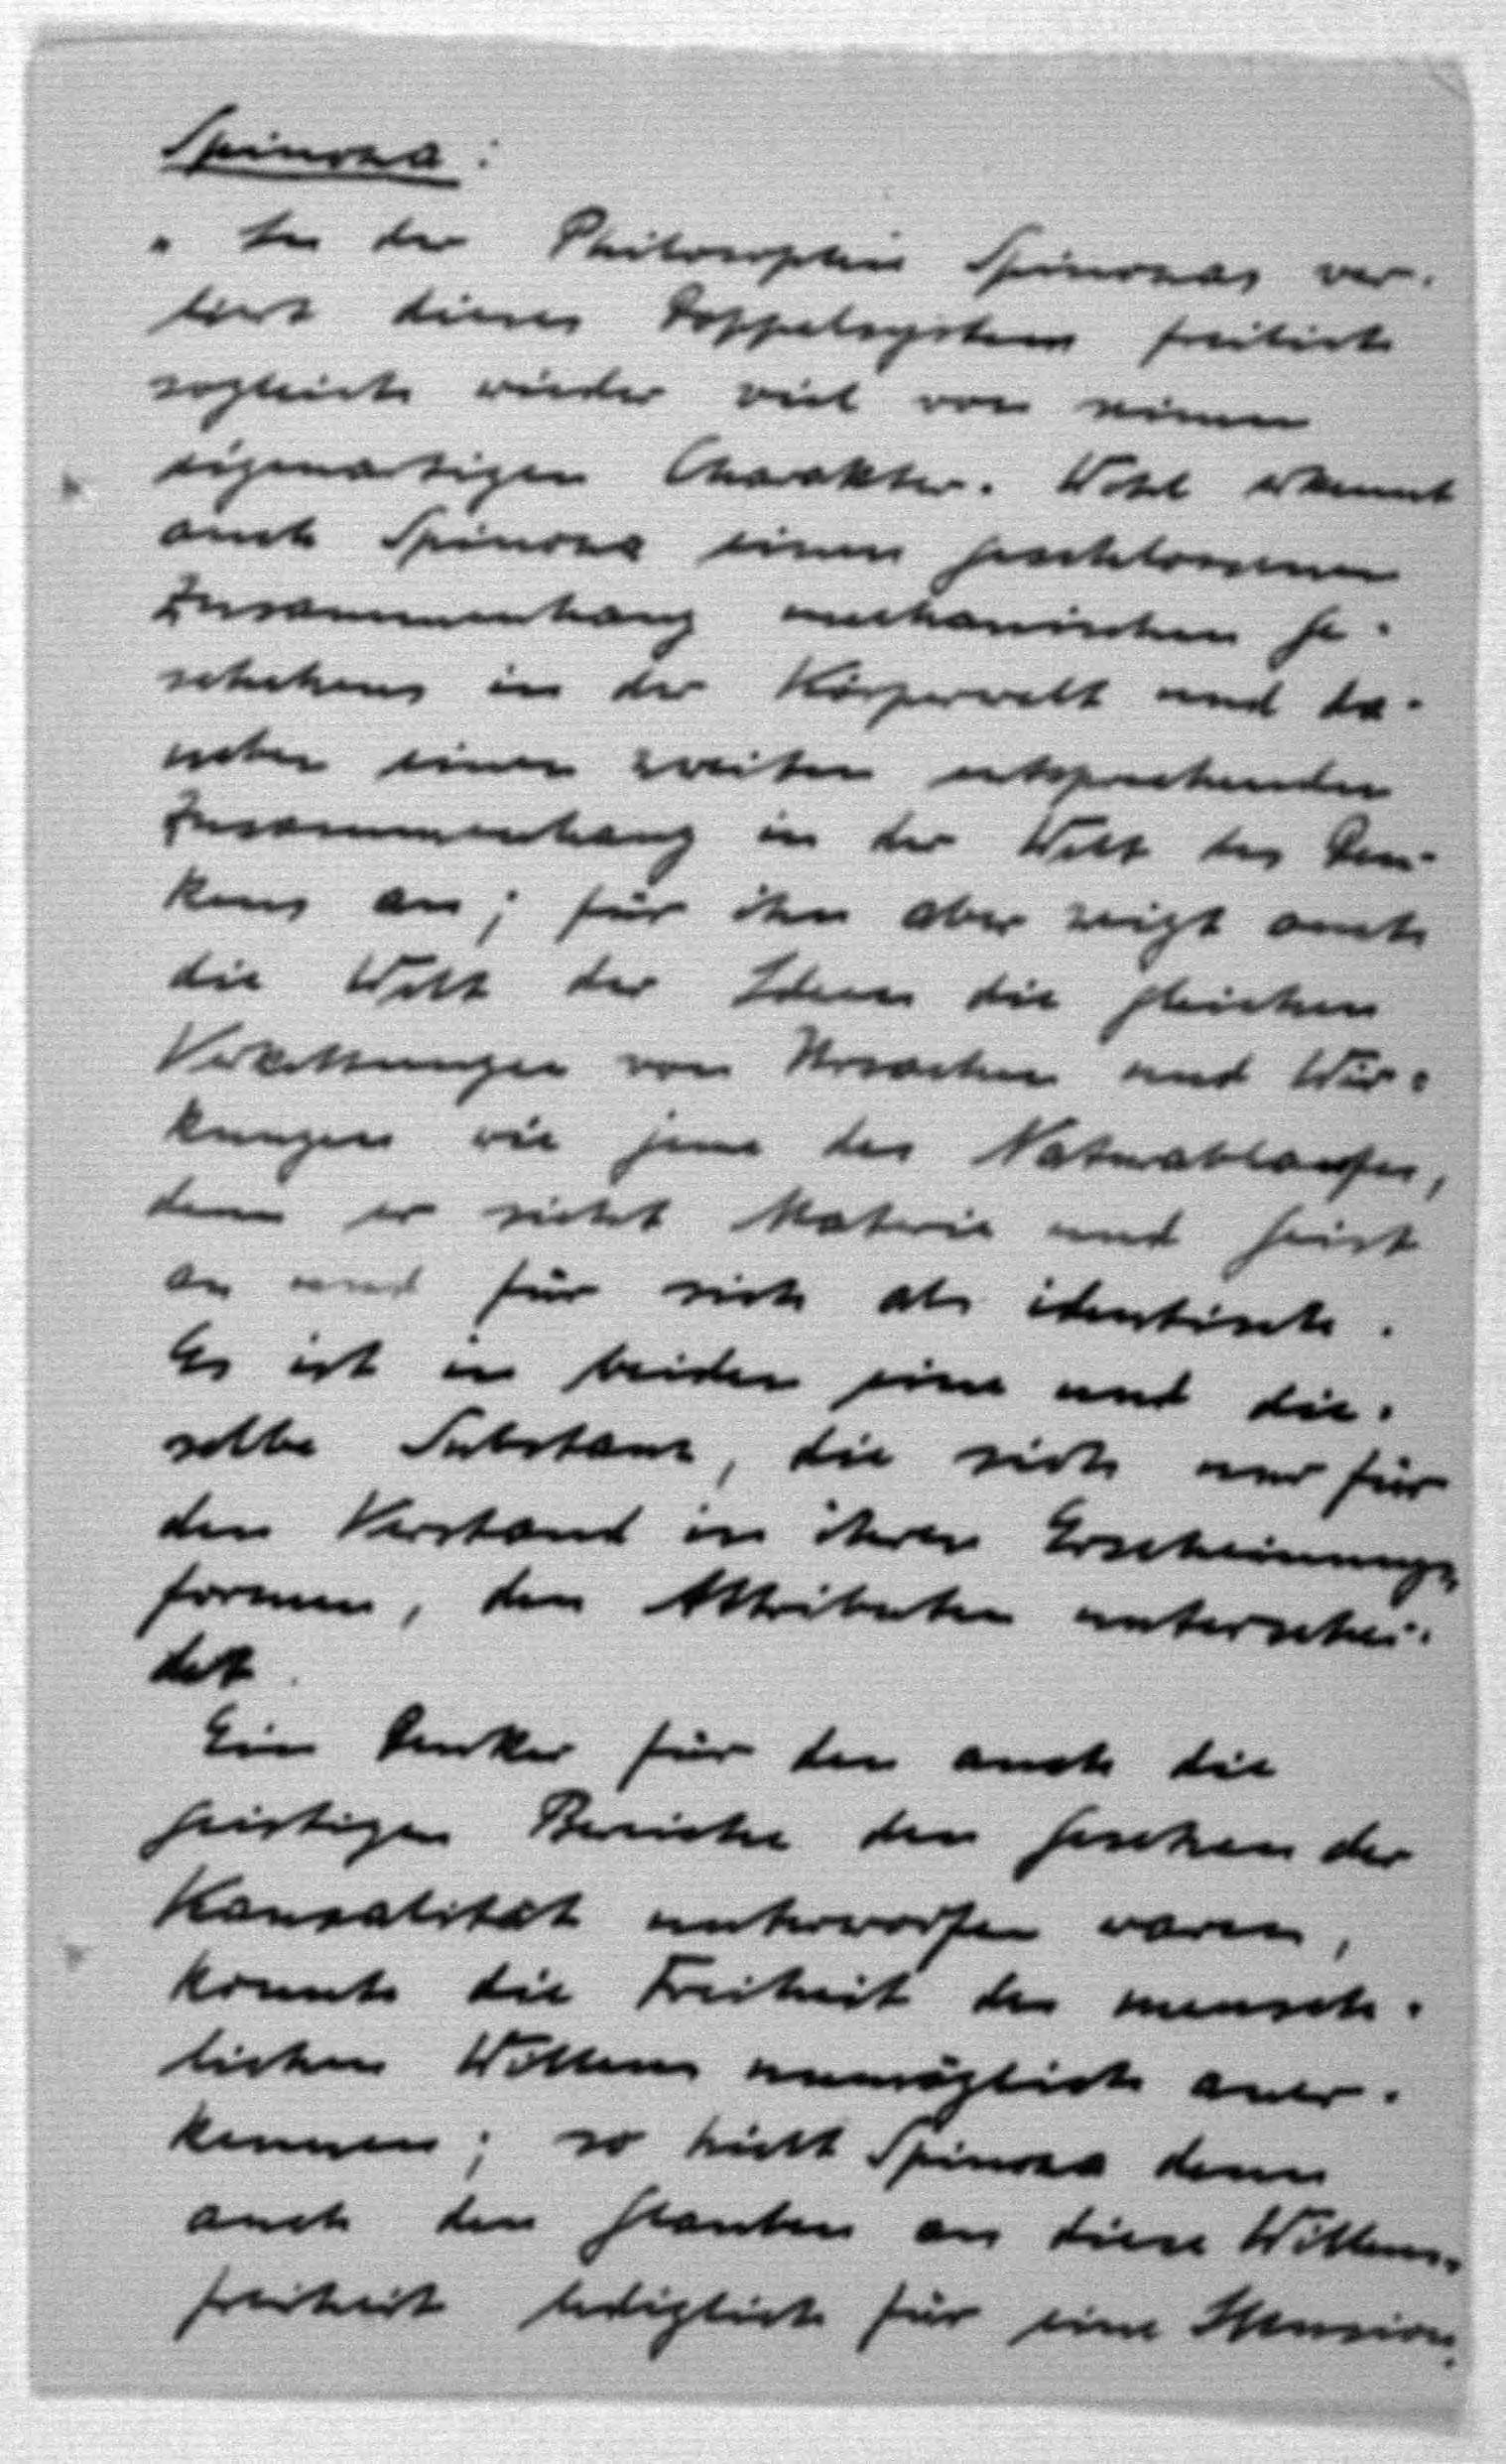 Spinoza:
„ In der Philosophie Spinozas ver-
liert dieses Doppelsystem freilich
sogleich wieder viel von seinem
eigenartigen Charakter. Wohl erkennt
auch Spinoza einen geschlossenen
Zusammenhang mechanischen Ge-
schehens in der Körperwelt und da-
neben einen zweiten entsprechenden
Zusammenhang in der Welt des Den-
kens an; für ihn aber zeigt auch
die Welt der Ideen die gleichen
Verkettungen von Ursachen und Wir-
kungen wie jene des Naturablaufes,
denn er sieht Materie und Geist
an und für sich als identisch.
Es ist in beiden eine und die-
selbe Substanz, die sich nur für
den Verstand in ihren Erscheinungs-
formen, den Attributen unterschei-
det.
Ein Denker für den auch die
geistigen Bereiche den Gesetzen der
Kausalität unterworfen waren,
konnte die Freiheit des mensch-
lichen Willens unmöglich aner-
kennen; so hielt Spinoza denn
auch den Glauben an diese Willens-
freiheit lediglich für eine Illusion.